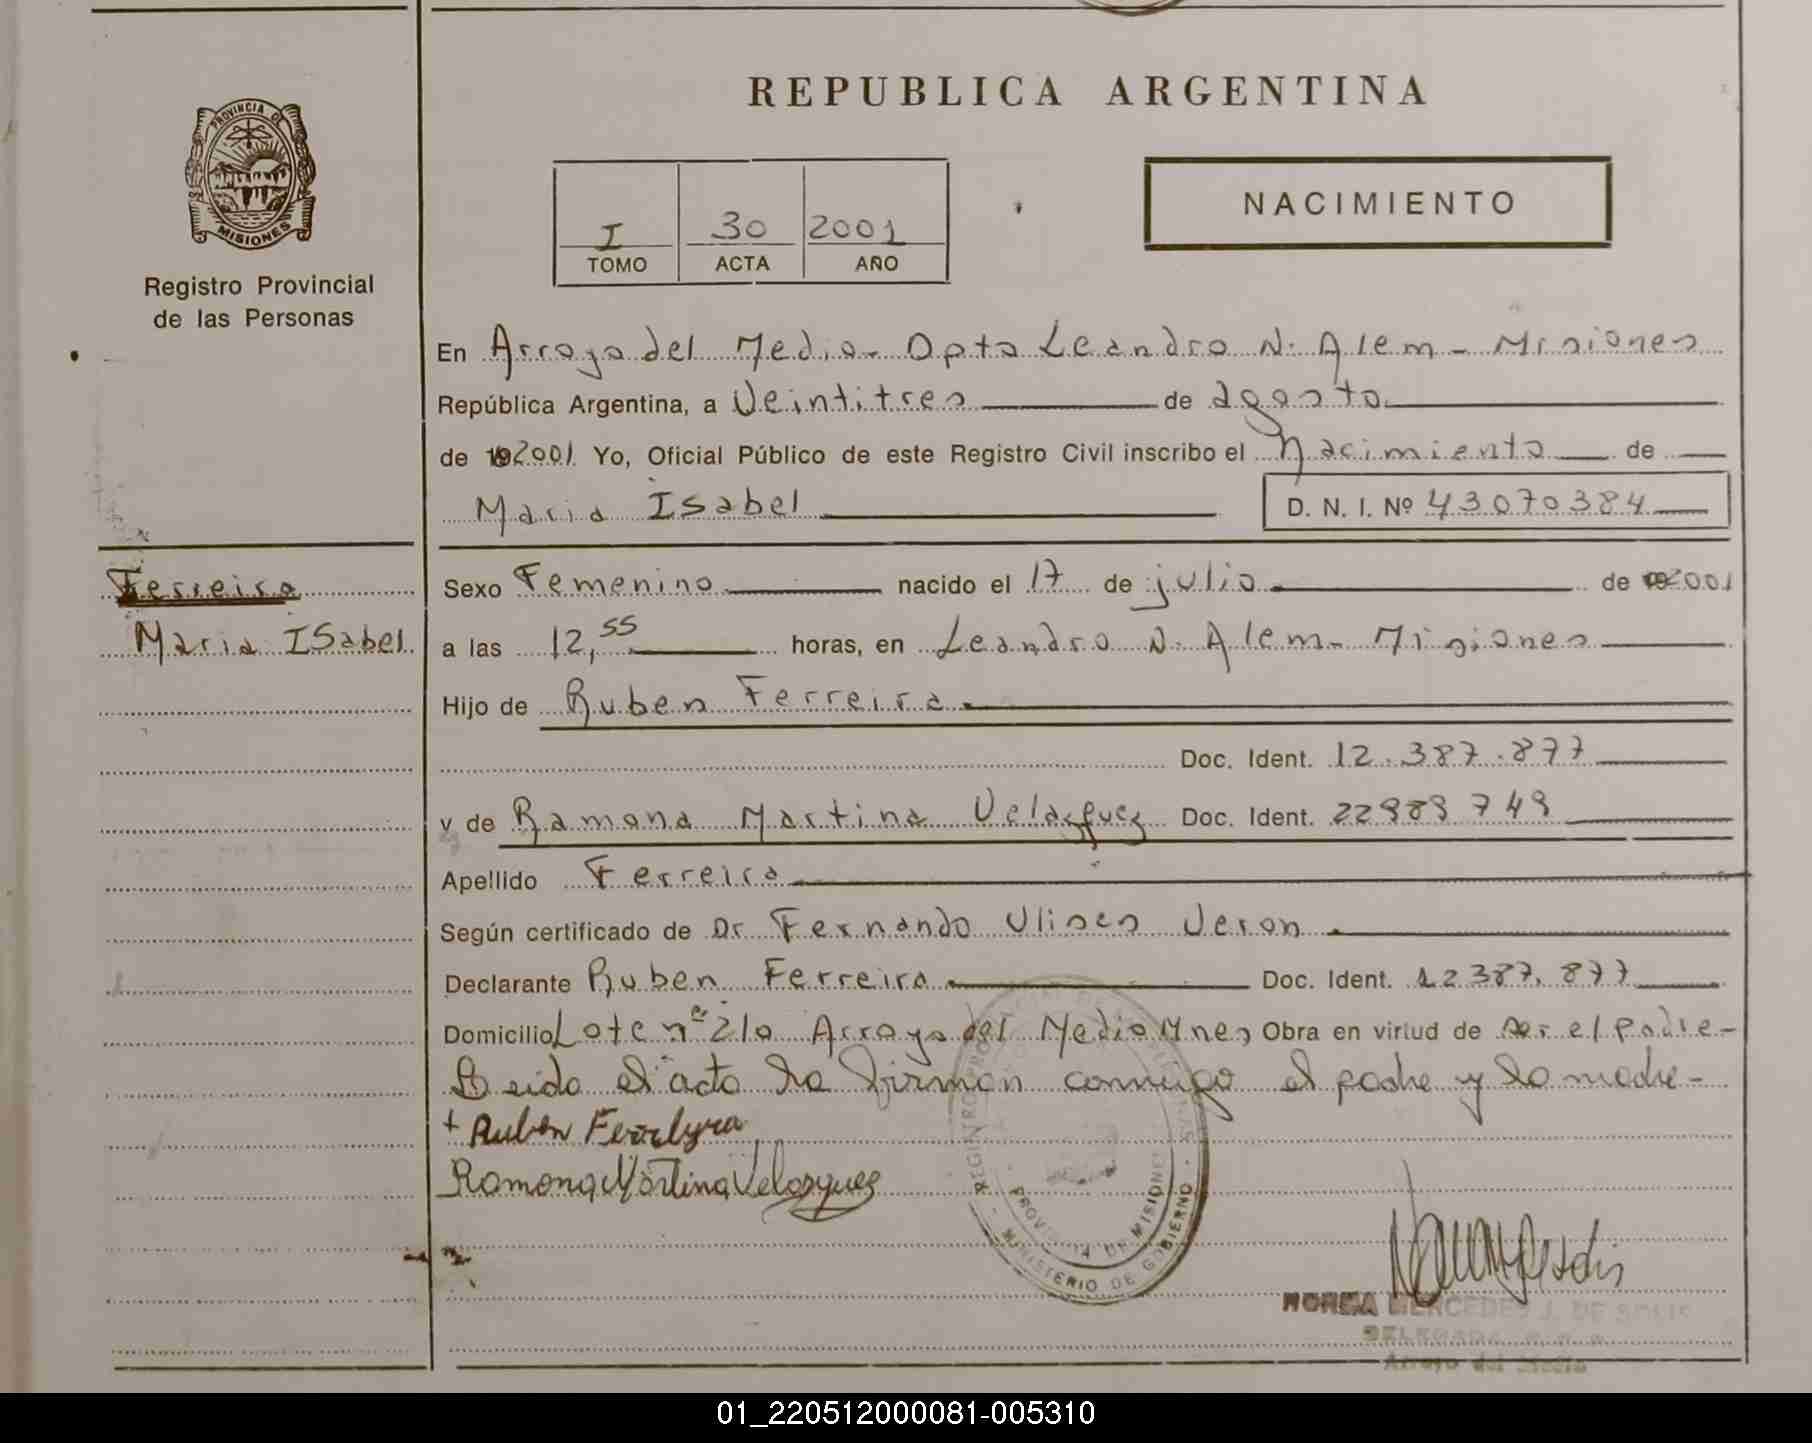 REPUBLICA ARGENTINA
PROVINCIA D
MISIONES
Registro Provincial
de las Personas
I 30 2001
TOMO ACTA AÑO
NACIMIENTO
En Arroyo del Medio - Dpto Leandro N. Alem - Misiones
República Argentina, a Veintitres de agosto
de 2001 Yo, Oficial Público de este Registro Civil inscribo el Nacimiento de
Maria Isabel D. N. I. Nº 43070384
Ferreira
Maria ISabel
Sexo Femenino nacido el 17 de julio de 2001
a las 12,55 horas, en Leandro N. Alem - Misiones
Hijo de Ruben Ferreira
Doc. Ident. 12.387.877
y de Ramona Martina Velazquez Doc. Ident. 22989749
Apellido Ferreira
Según certificado de Dr Fernando Ulises Veron
Declarante Ruben Ferreira Doc. Ident. 12387.877
Domicilio Lote nº 210 Arroyo del Medio Mnes Obra en virtud de ser el padre -
Leida el acta la firman conmigo el padre y la madre -
+ Ruben Ferreyra
Ramona Martina Velazquez
REGISTRO PROVINCIAL DE LAS PERSONAS
PROVINCIA DE MISIONES
MINISTERIO DE GOBIERNO
NORMA MERCEDES J. DE SOLIS
DELEGADA
Arroyo del Medio
01_220512000081-005310